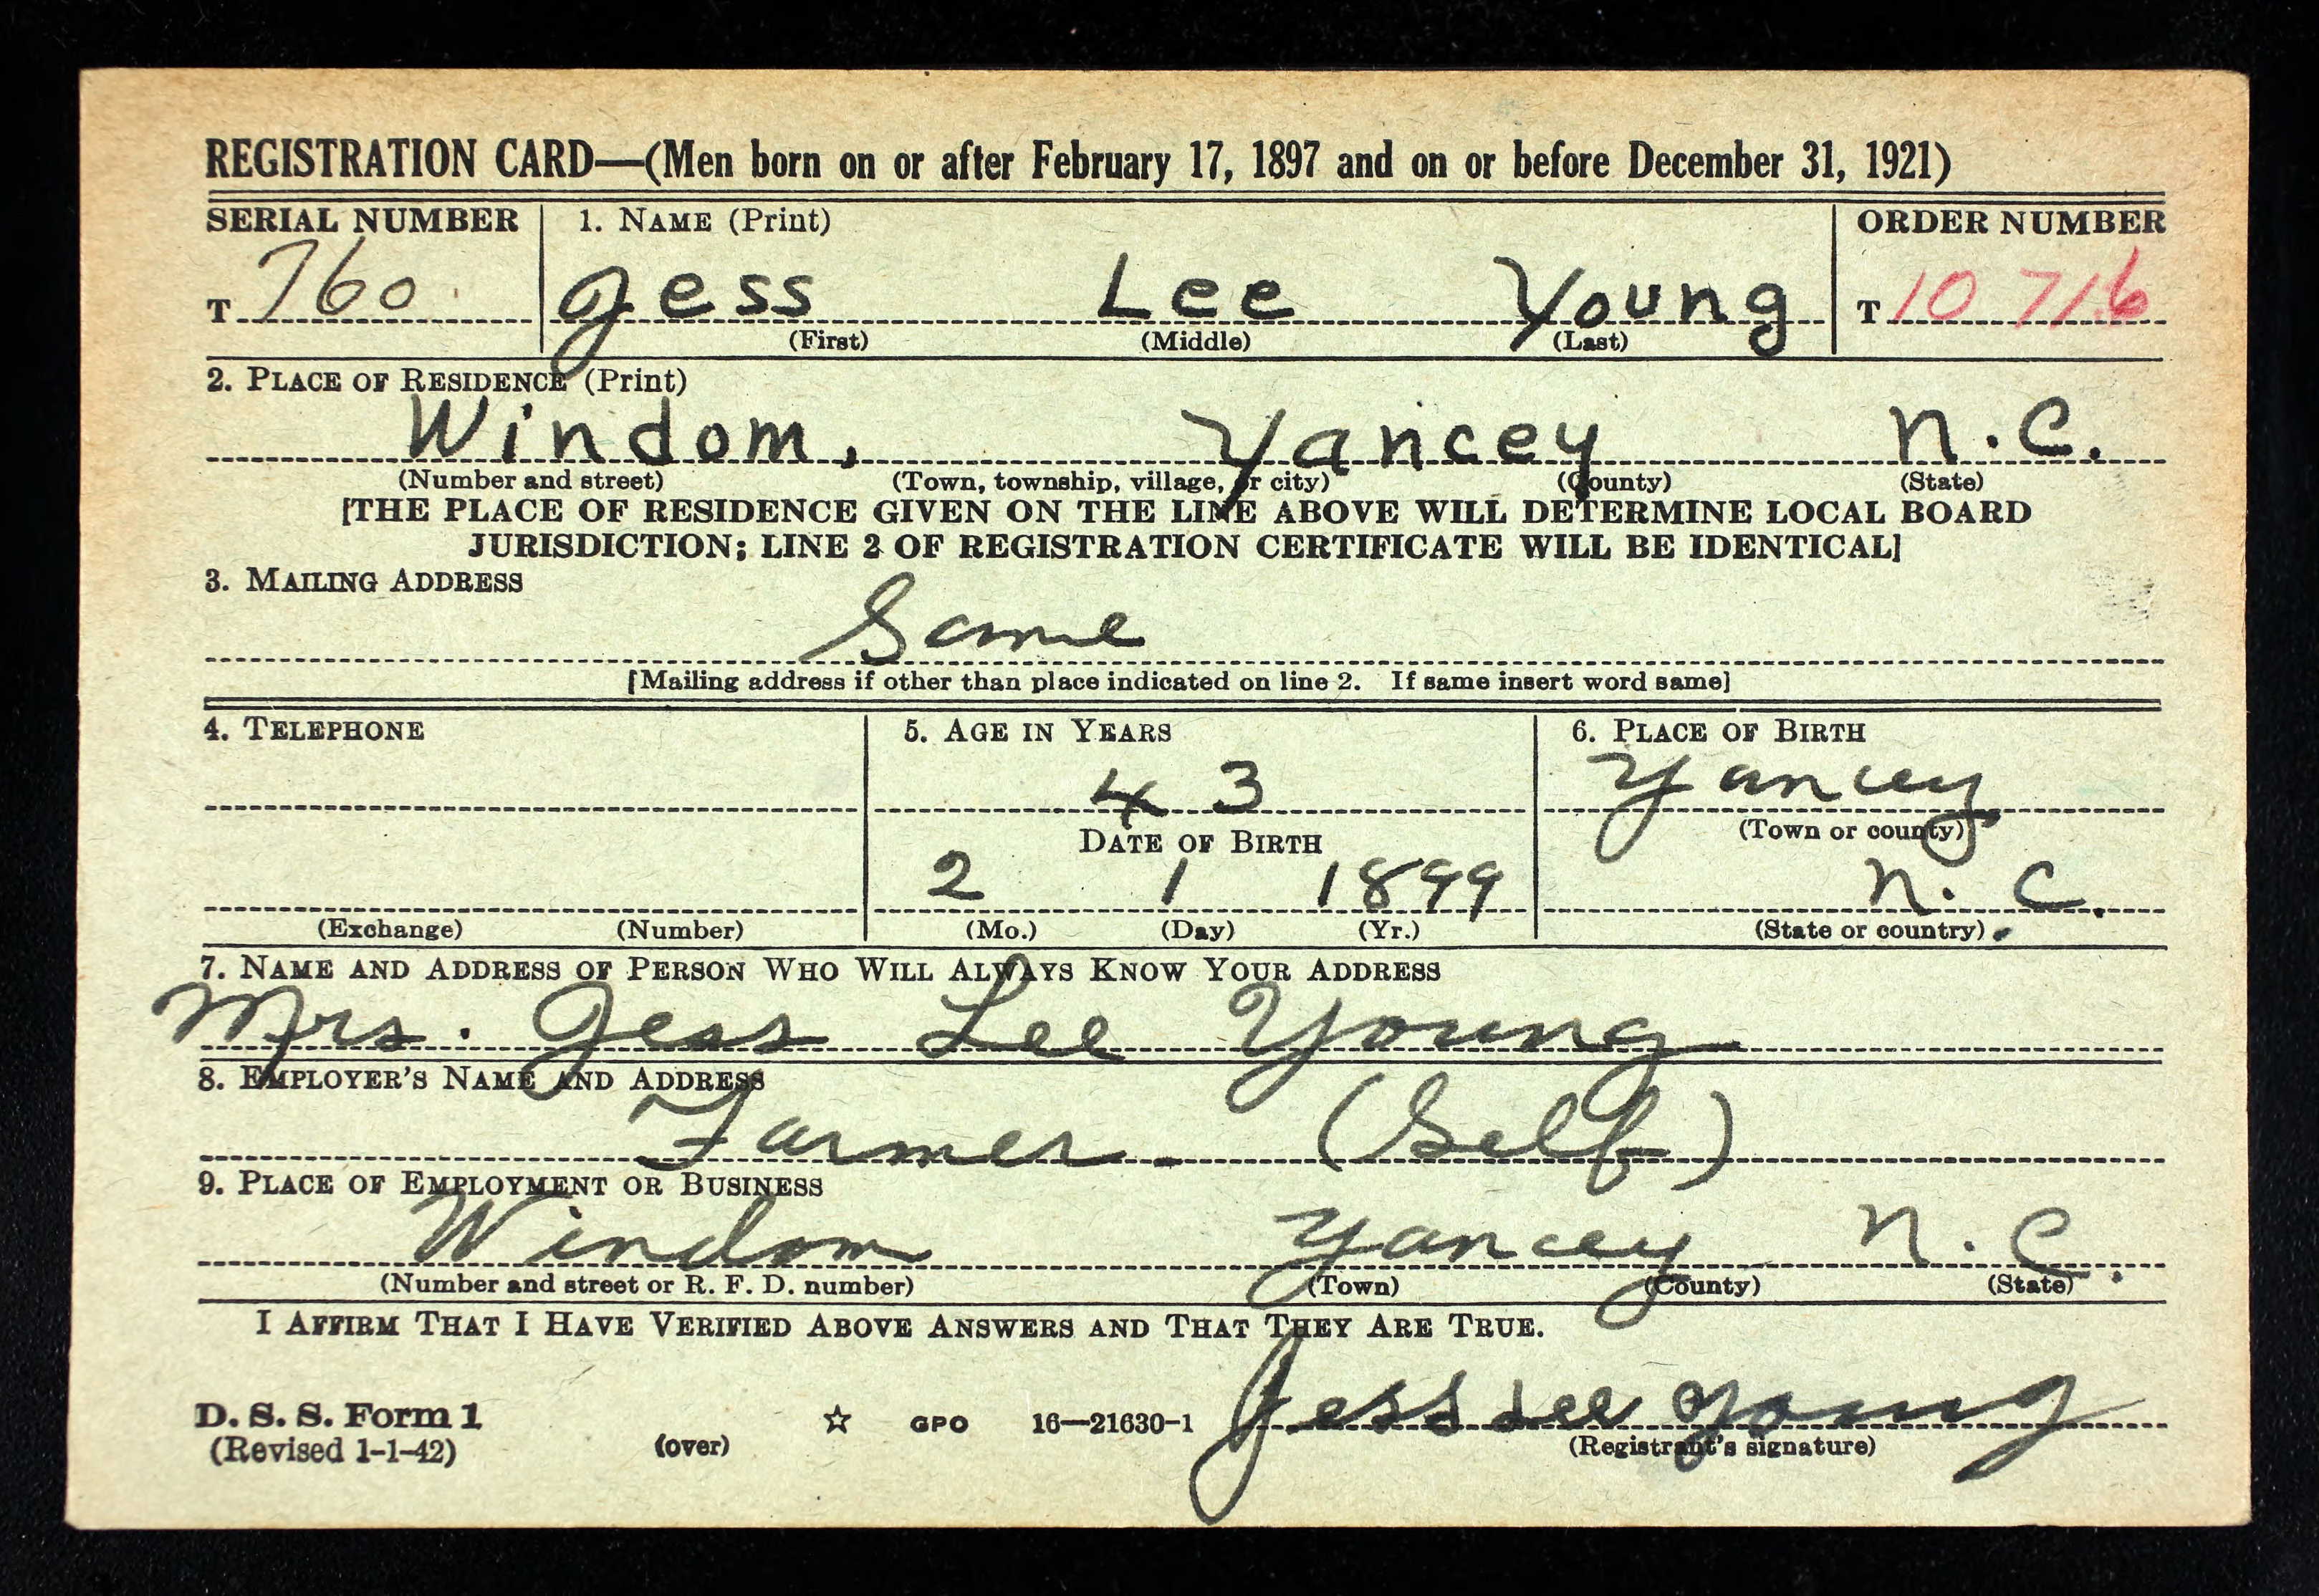 REGISTRATION CARD—(Men born on or after February 17, 1897 and on or before December 31, 1921)
SERIAL NUMBER 1. NAME (Print) ORDER NUMBER
T 760 Jess Lee Young T 10 716
(First) (Middle) (Last)
2. PLACE OF RESIDENCE (Print)
Windom, Yancey N.C.
(Number and street) (Town, township, village, or city) (County) (State)
[THE PLACE OF RESIDENCE GIVEN ON THE LINE ABOVE WILL DETERMINE LOCAL BOARD
JURISDICTION; LINE 2 OF REGISTRATION CERTIFICATE WILL BE IDENTICAL]
3. MAILING ADDRESS
Same
[Mailing address if other than place indicated on line 2. If same insert word same]
4. TELEPHONE 5. AGE IN YEARS 6. PLACE OF BIRTH
43 Yancey
DATE OF BIRTH (Town or county)
2 1 1899 N. C.
(Exchange) (Number) (Mo.) (Day) (Yr.) (State or country)
7. NAME AND ADDRESS OF PERSON WHO WILL ALWAYS KNOW YOUR ADDRESS
Mrs. Jess Lee Young
8. EMPLOYER'S NAME AND ADDRESS
Farmer - (Self)
9. PLACE OF EMPLOYMENT OR BUSINESS
Windom Yancey N.C.
(Number and street or R. F. D. number) (Town) (County) (State)
I AFFIRM THAT I HAVE VERIFIED ABOVE ANSWERS AND THAT THEY ARE TRUE.
D. S. S. Form 1 ☆ GPO 16—21630-1 Jess Lee Young
(Revised 1-1-42) (over) (Registrant's signature)